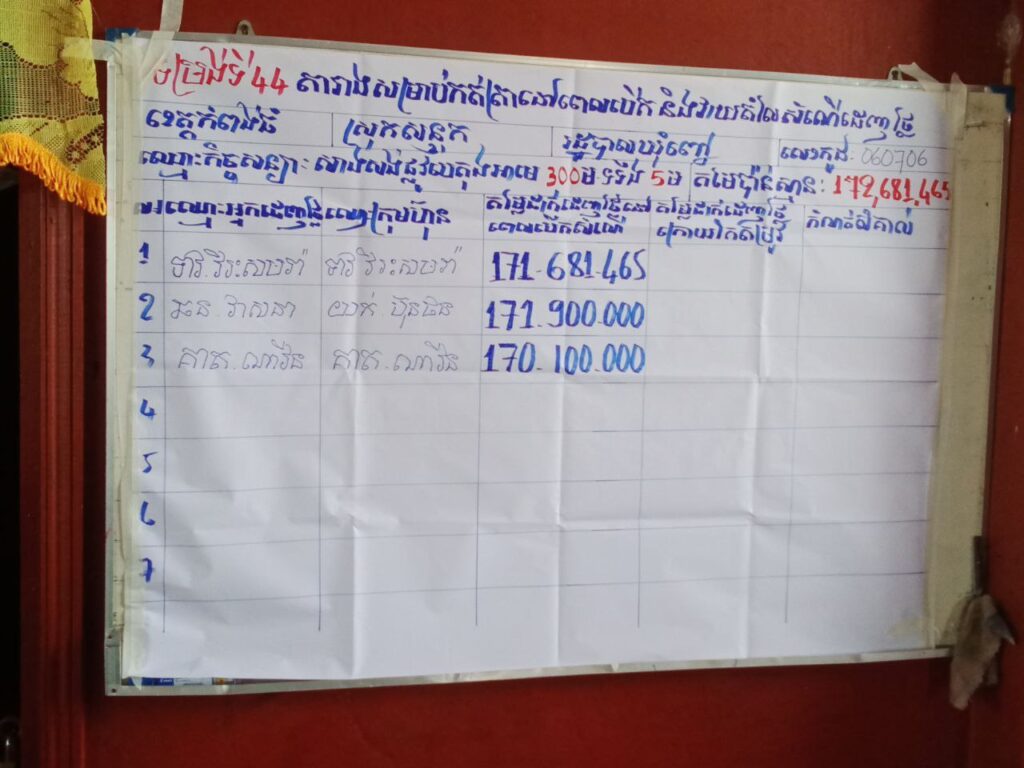 ទម្រង់ទី 44 តារាងសម្រាប់កត់ត្រានៅពេលបើក និងវាយតំលៃសំណើដេញថ្លៃ
ខេត្តកំពង់ធំ ស្រុកសន្ទុក រដ្ឋបាលឃុំ លេខកូដ: 060706
ឈ្មោះកិច្ចសន្យា: សាងសង់ផ្លូវបេតុងអាមេ 300ម ទទឹង 5ម តម្លៃប៉ាន់ស្មាន: 172,681,465
ល.រ ឈ្មោះអ្នកដេញថ្លៃ ឈ្មោះក្រុមហ៊ុន តម្លៃដាក់ដេញថ្លៃនៅ តម្លៃដាក់ដេញថ្លៃ កំណត់សំគាល់
ពេលបើកសំណើ ក្រោយពេលកែតម្រូវ
1 171.681.465
2 ឆន វាសនា 171.900.000
3 គាត ណារីន គាត ណារីន 170.100.000
4
5
6
7